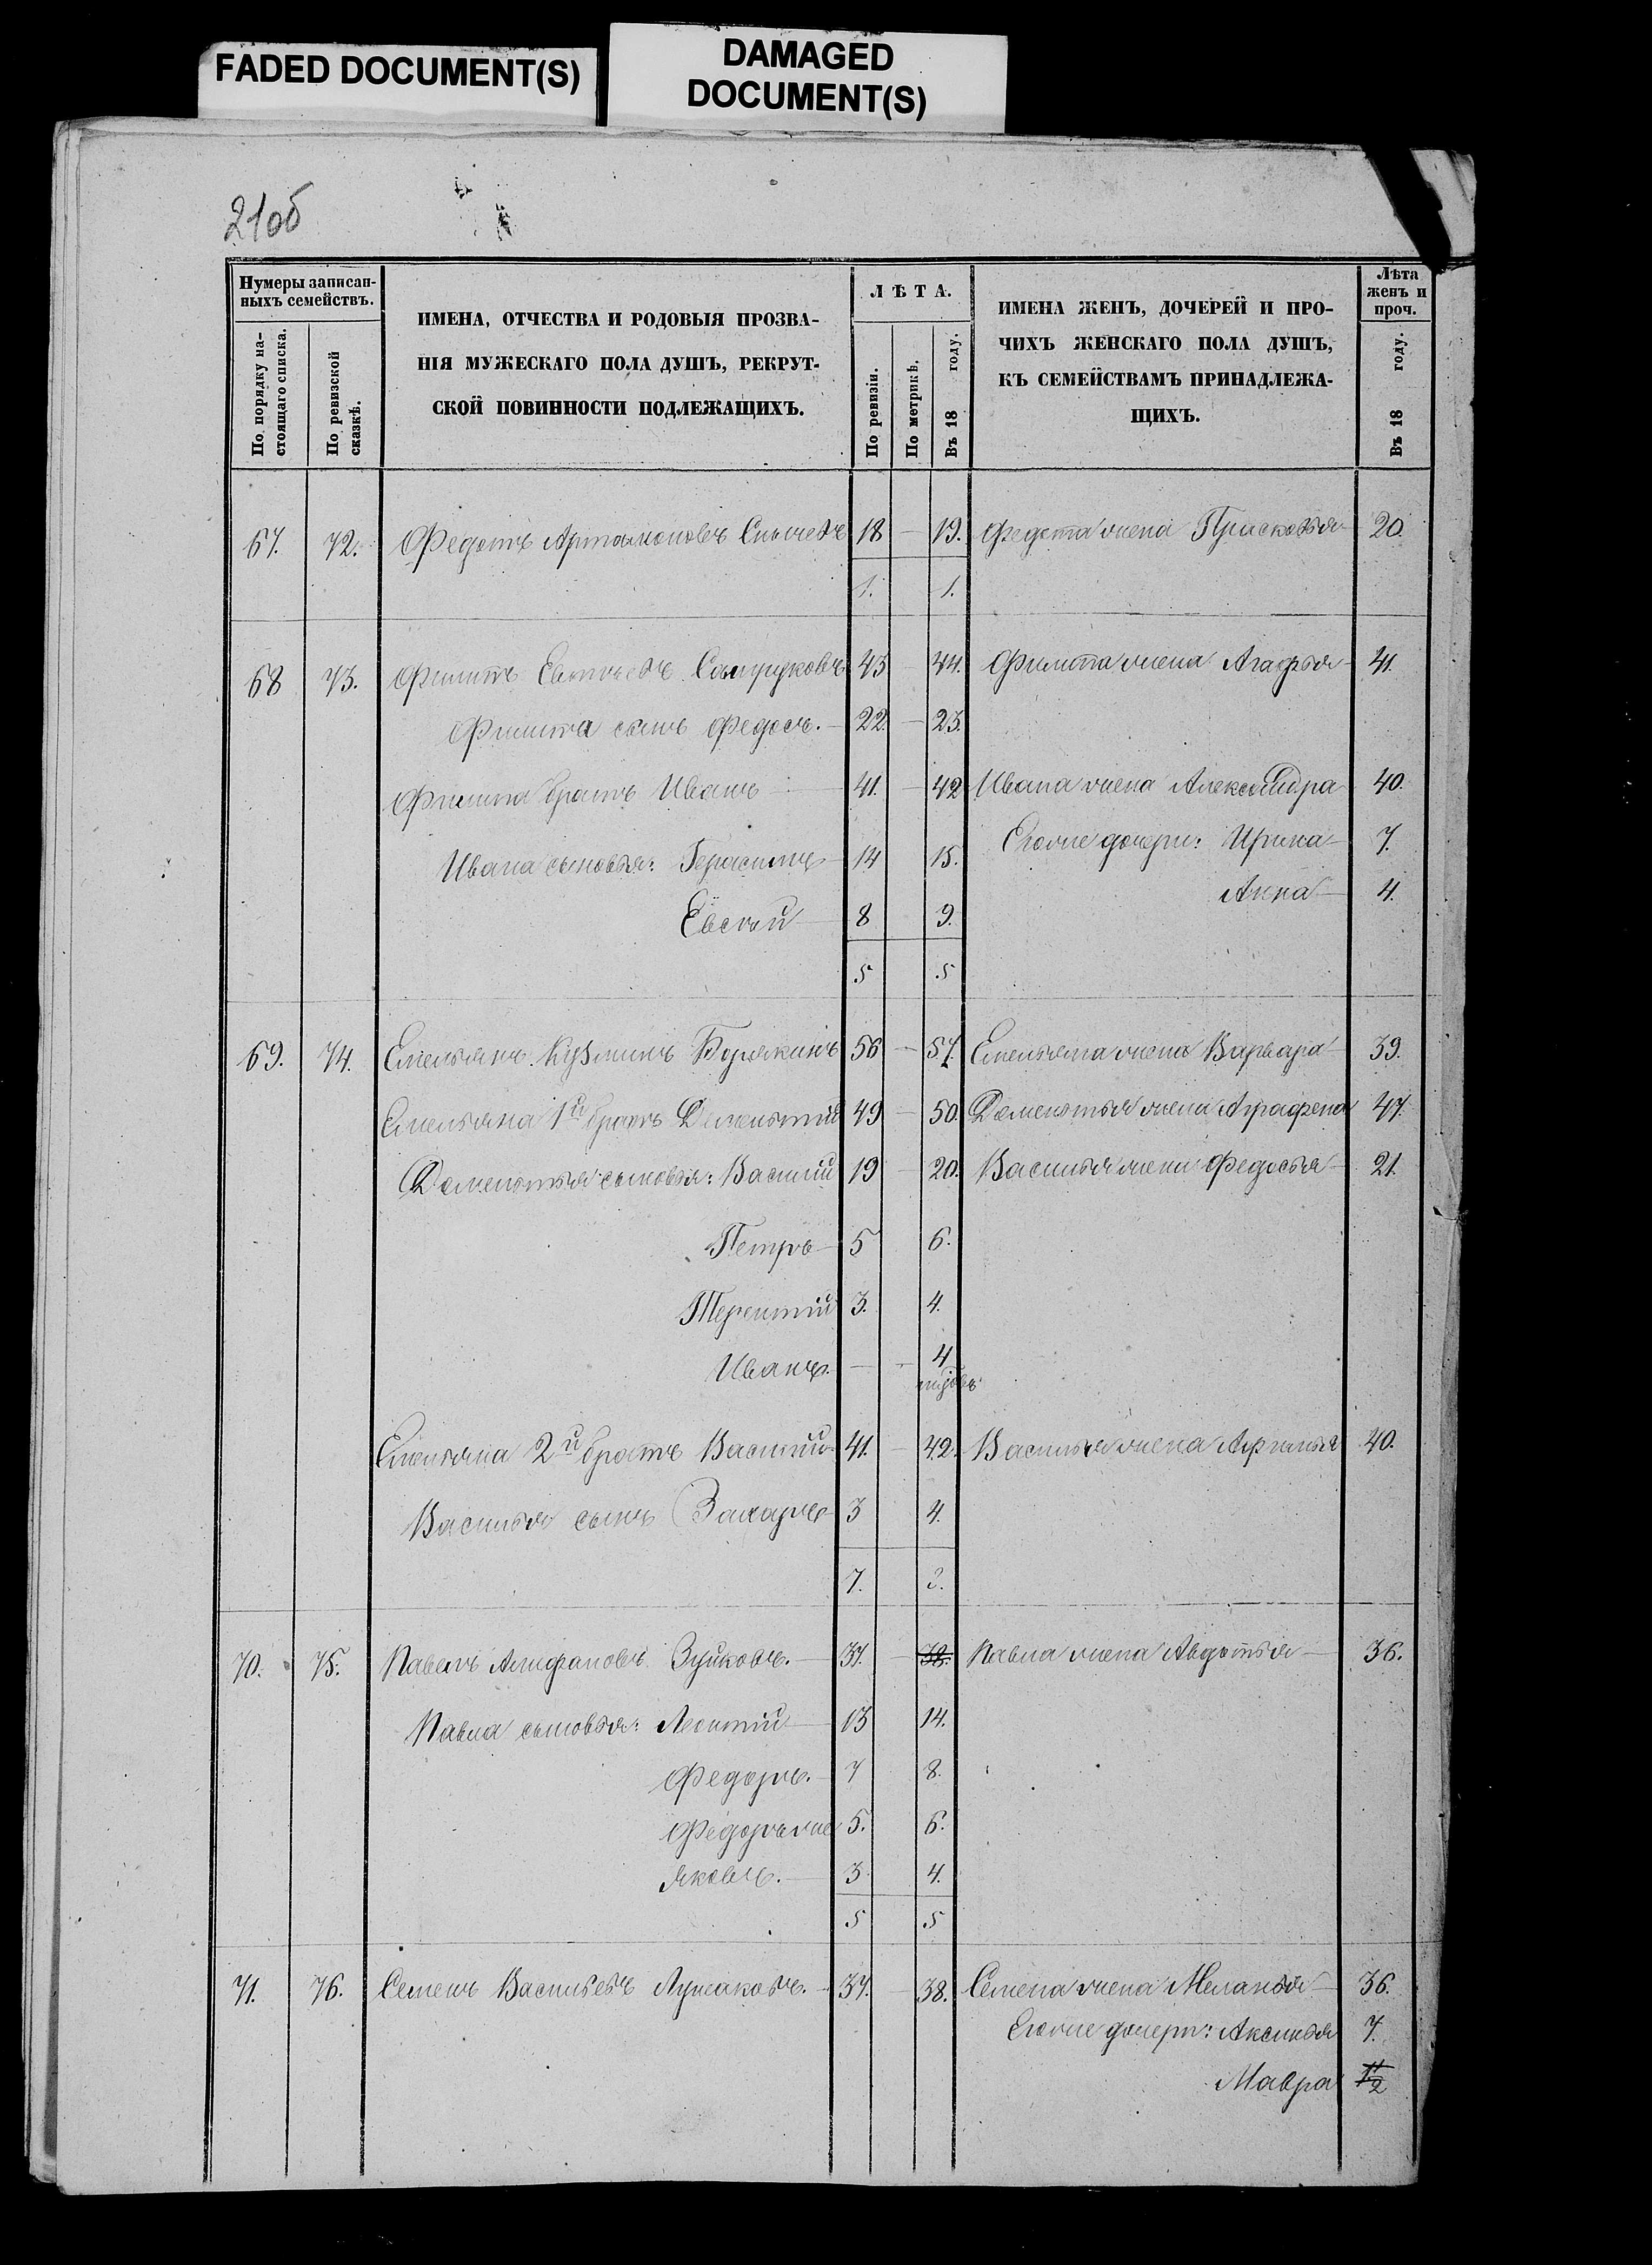 FADED DOCUMENT(S)
DAMAGED
DOCUMENT(S)
21об
Нумеры записан-
ныхъ семействъ.
По порядку на-
стоящаго списка.
По ревизской
сказкѣ.
ИМЕНА, ОТЧЕСТВА И РОДОВЫЯ ПРОЗВА-
НІЯ МУЖЕСКАГО ПОЛА ДУШЪ, РЕКРУТ-
СКОЙ ПОВИННОСТИ ПОДЛЕЖАЩИХЪ.
ЛѢТА.
По ревизіи.
По метрикѣ.
Въ 18 году.
ИМЕНА ЖЕНЪ, ДОЧЕРЕЙ И ПРО-
ЧИХЪ ЖЕНСКАГО ПОЛА ДУШЪ,
КЪ СЕМЕЙСТВАМЪ ПРИНАДЛЕЖА-
ЩИХЪ.
Лѣта
женъ и
проч.
Въ 18 году.
67. 72. Федотъ Артамоновъ 18 — 19. Федота жена Прасковья 20.
1. 1.
68 73. Филипъ 43 — 44. Филипа жена Агафья 41.
Филипа сынъ Федосъ. 22. — 23.
Филипа братъ Иванъ 41. — 42 Ивана жена Александра 40.
Ивана сыновья: Герасимъ 14 15. Егожъ дочери: Ирина 7.
Анна 4.
Евсей 8 9.
5 5
69. 74. Емельянъ Кузминъ 56 — 57. Емельяна жена Варвара 39.
Емельяна 1й братъ Дементій 49 — 50. Дементья жена Аграфена 47.
Дементья сыновья: Василій 19 — 20. Василья жена Федосья 21.
Петръ 5 6.
Терентій 3. 4.
Иванъ. — — 4
Емельяна 2й братъ Василій 41. — 42. Василья жена 40.
Василья сынъ Захаръ 3 4.
7. 8.
70. 75. Павелъ Зуйковъ. 37. 38. Павла жена Авдотья 36.
Павла сыновья: Леонтій 13 14.
Федоръ. 7 8.
Федоръ же 5. 6.
Яковъ. 3 4.
5 5
71. 76. Семенъ Васильевъ 37. 38. Семена жена Меланья 36.
Егоже дочери: Аксинья 7.
Мавра